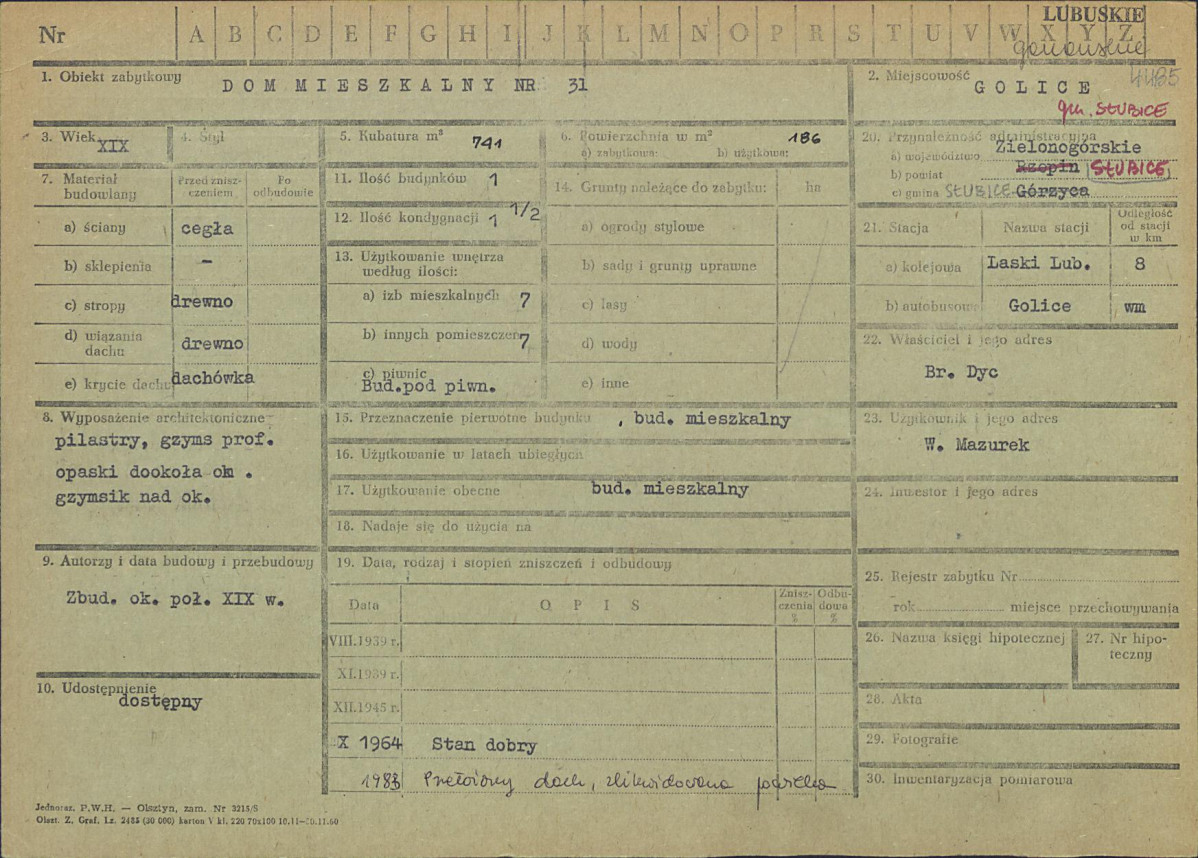 LUBUSKIE
Nr A B C D E F G H I J K L M N O P R S T U V W X Y Z
gorzowskie
1. Obiekt zabytkowy
DOM MIESZKALNY NR 31
2. Miejscowość 4485
GOLICE
gm. SŁUBICE
3. Wiek XIX
4. Styl
5. Kubatura m³ 741
6. Powierzchnia w m² 186
a) zabytkowa: b) użytkowa:
7. Materiał budowlany
Przed zniszczeniem
Po odbudowie
a) ściany cegła
b) sklepienia –
c) stropy drewno
d) wiązania dachu drewno
e) krycie dachu dachówka
8. Wyposażenie architektoniczne
pilastry, gzyms prof.
opaski dookoła ok .
gzymsik nad ok.
9. Autorzy i data budowy i przebudowy
Zbud. ok. poł. XIX w.
10. Udostępnienie
dostępny
11. Ilość budynków 1
12. Ilość kondygnacji 1 1/2
13. Użytkowanie wnętrza
według ilości:
a) izb mieszkalnych 7
b) innych pomieszczeń 7
c) piwnic
Bud.pod piwn.
14. Grunty należące do zabytku: ha
a) ogrody stylowe
b) sady i grunty uprawne
c) lasy
d) wody
e) inne
15. Przeznaczenie pierwotne budynku , bud. mieszkalny
16. Użytkowanie w latach ubiegłych
17. Użytkowanie obecne bud. mieszkalny
18. Nadaje się do użycia na
19. Data, rodzaj i stopień zniszczeń i odbudowy
Data O P I S Zniszczenia % Odbudowa %
VIII.1939 r.
XI.1939 r.
XII.1945 r.
X 1964 Stan dobry
1983 Przełożony dach, zlikwidowana
20. Przynależność administracyjna
a) województwo Zielonogórskie
b) powiat Rzepin SŁUBICE
c) gmina SŁUBICE Górzyca
21. Stacja Nazwa stacji Odległość od stacji w km
a) kolejowa Laski Lub. 8
b) autobusowa Golice wm
22. Właściciel i jego adres
Br. Dyc
23. Użytkownik i jego adres
W. Mazurek
24. Inwestor i jego adres
25. Rejestr zabytku Nr
rok miejsce przechowywania
26. Nazwa księgi hipotecznej
27. Nr hipoteczny
28. Akta
29. Fotografie
30. Inwentaryzacja pomiarowa
Jednoraz. P.W.H. — Olsztyn, zam. Nr 3215/S
Olszt. Z. Graf. Lz. 2485 (30 000) karton V kl. 220 70x100 10.11—30.11.60